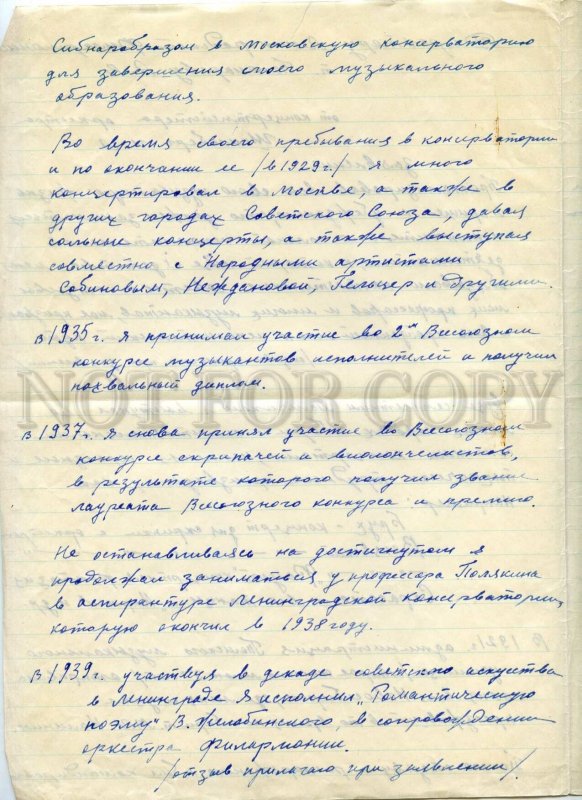 Сибнаробразом в Московскую консерваторию
для завершения своего музыкального
образования.
Во время своего пребывания в консерватории
и по окончании ее /в 1929 г./ я много
концертировал в Москве а также в
других городах Советского Союза давая
сольные концерты, а также выступая
совместно с Народными артистами
Собиновым, Неждановой, Гельцер и другими.
в 1935 г. я принимал участие во 2м Всесоюзном
конкурсе музыкантов исполнителей и получил
похвальный диплом.
NOT FOR COPY
в 1937 г. я снова принял участие во Всесоюзном
конкурсе скрипачей и виолончелистов,
в результате которого получил звание
лауреата Всесоюзного конкурса и премию.
Не останавливаясь на достигнутом я
продолжал заниматься у профессора Полякина
в аспирантуре Ленинградской Консерватории,
которую окончил в 1938 году.
в 1939 г. участвуя в декаде советского искусства
в Ленинграде я исполнил „Романтическую
поэму" В. Желобинского, в сопровождении
оркестра Филармонии.
/отзыв прилагаю при заявлении/